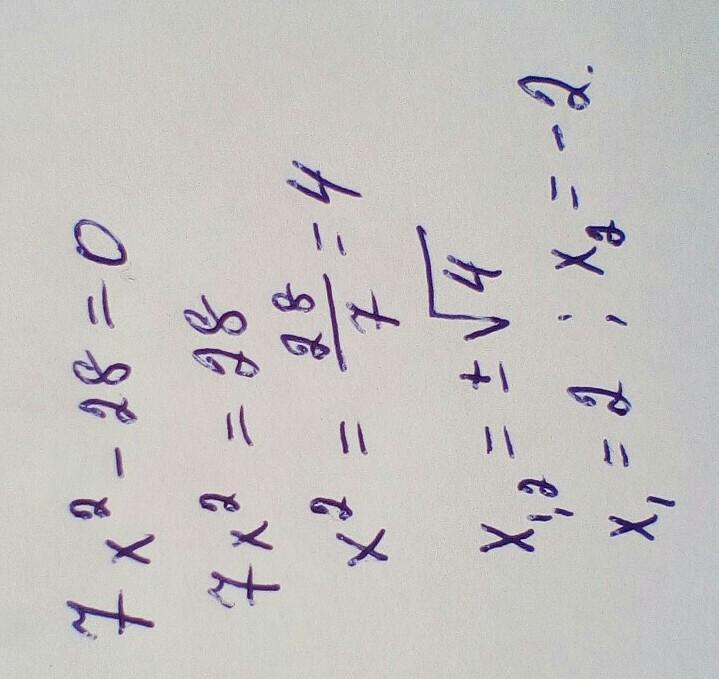 7x² - 28 = 0
7x² = 28
x² = 28/7 = 4
x₁,₂ = ± √4
x₁ = 2 ; x₂ = -2.